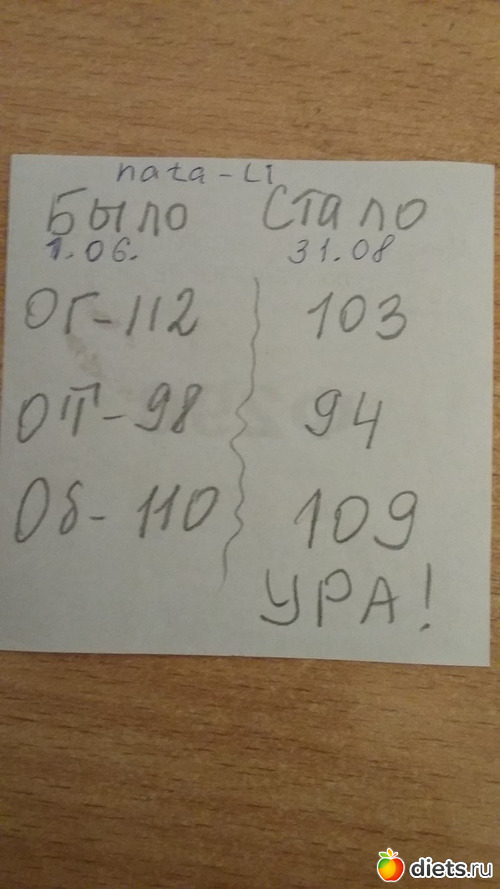 nata-Li
Было Стало
1.06. 31.08
ОГ-112 103
ОТ-98 94
Об-110 109
УРА!
diets.ru